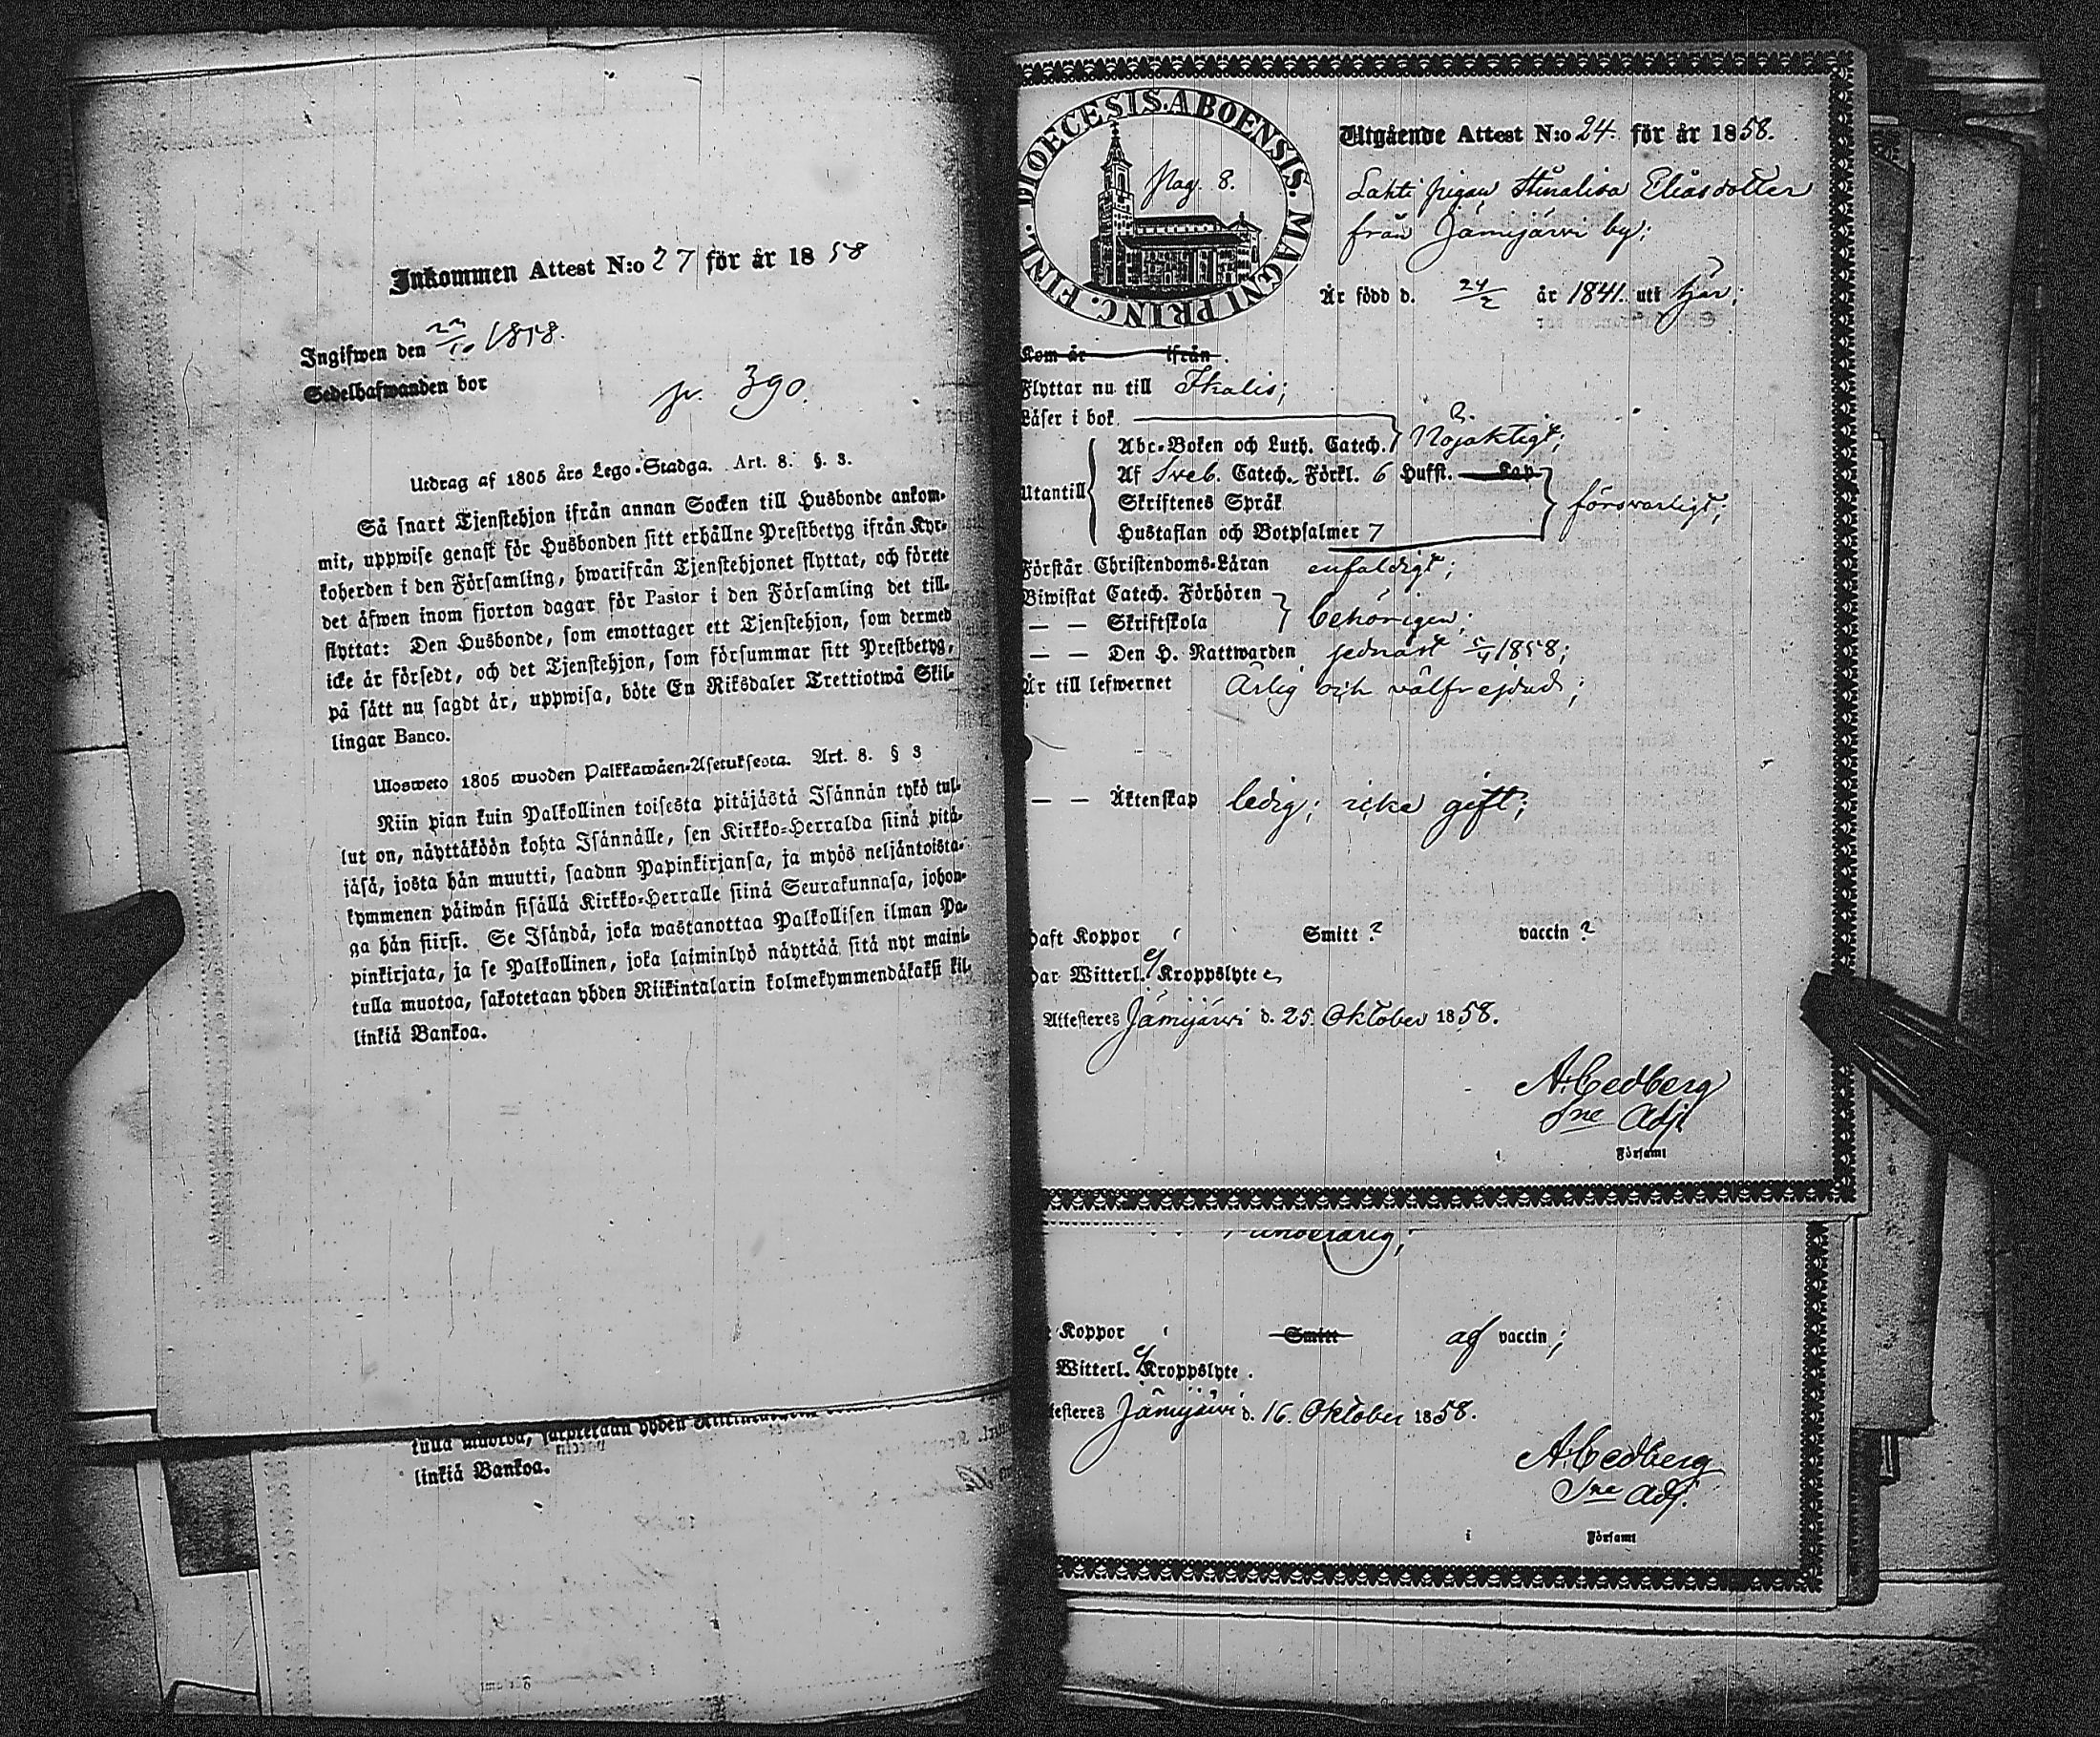 Inkommen Attest N:o 27 för år 1858
Ingifwen den 27/10 1858.
Sedelhafwanden bor
p. 390.
Utdrag af 1805 års Lego-Stadga. Art. 8. §. 3.
Så snart Tjenstehjon ifrån annan Socken till Husbonde ankom-
mit, uppwise genast för Husbonden sitt erhållne Prestbetyg ifrån Kyr-
koherden i den Församling, hwarifrån Tjenstehjonet flyttat, och förete
det äfwen inom fjorton dagar för Pastor i den Församling det till-
flyttat: Den Husbonde, som emottager ett Tjenstehjon, som dermed
icke är försedt, och det Tjenstehjon, som försummar sitt Prestbetyg,
på sätt nu sagdt är, uppwisa, böte En Riksdaler Trettiotwå Skil-
lingar Banco.
Ulosweto 1805 wuoden Palkkawäen-Asetuksesta. Art. 8. § 3
Niin pian kuin Palkollinen toisesta pitäjästä Isännän tykö tul-
lut on, näyttäköön kohta Isännälle, sen Kirkko-Herralda siinä pitä-
jäsä, josta hän muutti, saadun Papinkirjansa, ja myös neljäntoista-
kymmenen päiwän sisällä Kirkko-Herralle siinä Seurakunnasa, johon-
ga hän siirsi. Se Isändä, joka wastanottaa Palkollisen ilman Pa-
pinkirjata, ja se Palkollinen, joka laiminlyö näyttää sitä nyt maini-
tulla muotoa, sakotetaan yhden Riikintalarin kolmekymmendäkaksi kil-
linkiä Bankoa.
tulla muotoa, sakotetaan yhden
linkiä Bankoa.
DIOECESIS.ABOENSIS.MAGNI PRINC.FINL.
Pag. 8.
Utgående Attest N:o 24. för år 1858.
Lahti pigan Stinalisa Eliasdotter
från Jämijärvi by;
Är född d. 24/2 år 1841. uti här;
Kom år ifrån.
Flyttar nu till Ikalis;
Läser i bok.
Abc-Boken och Luth. Catech. Nöjaktigt;
Utantill
Af Sveb. Catech. Förkl. 6 Hufst. Kap
Skriftenes Språk
försvarligt;
Hustaflan och Botpsalmer 7
Förstår Christendoms-Läran enfaldigt;
Biwistat Catech. Förhören
— — Skriftskola behörigen;
— — Den H. Nattwarden sednast 5/4 1858;
Är till lefwernet Ärlig och välfrejdad;
— — Äktenskap ledig; icke gift;
haft Koppor Smitt ? vaccin ?
har Witterl. ej Kroppslyte
Attesteres Jämijärvi d. 25. Oktober 1858.
A. Cedberg
Adj.
i Församl
underårig;
Koppor Smitt af vaccin;
Witterl. ej Kroppslyte.
testeres Jämijärvi d. 16. Oktober 1858.
A. Cedberg
Adj.
i Församl